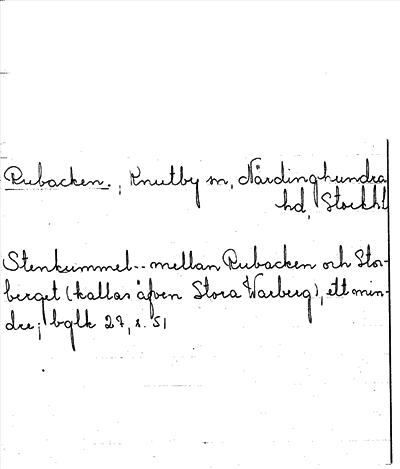 Rubacken., Knutby sn, Närdinghundra
hd, Stockhl
Stenkummel -- mellan Rubacken och Stor-
berget (kallas äfven Stora Warberg), ett min-
dre; bglk 27, s. 51